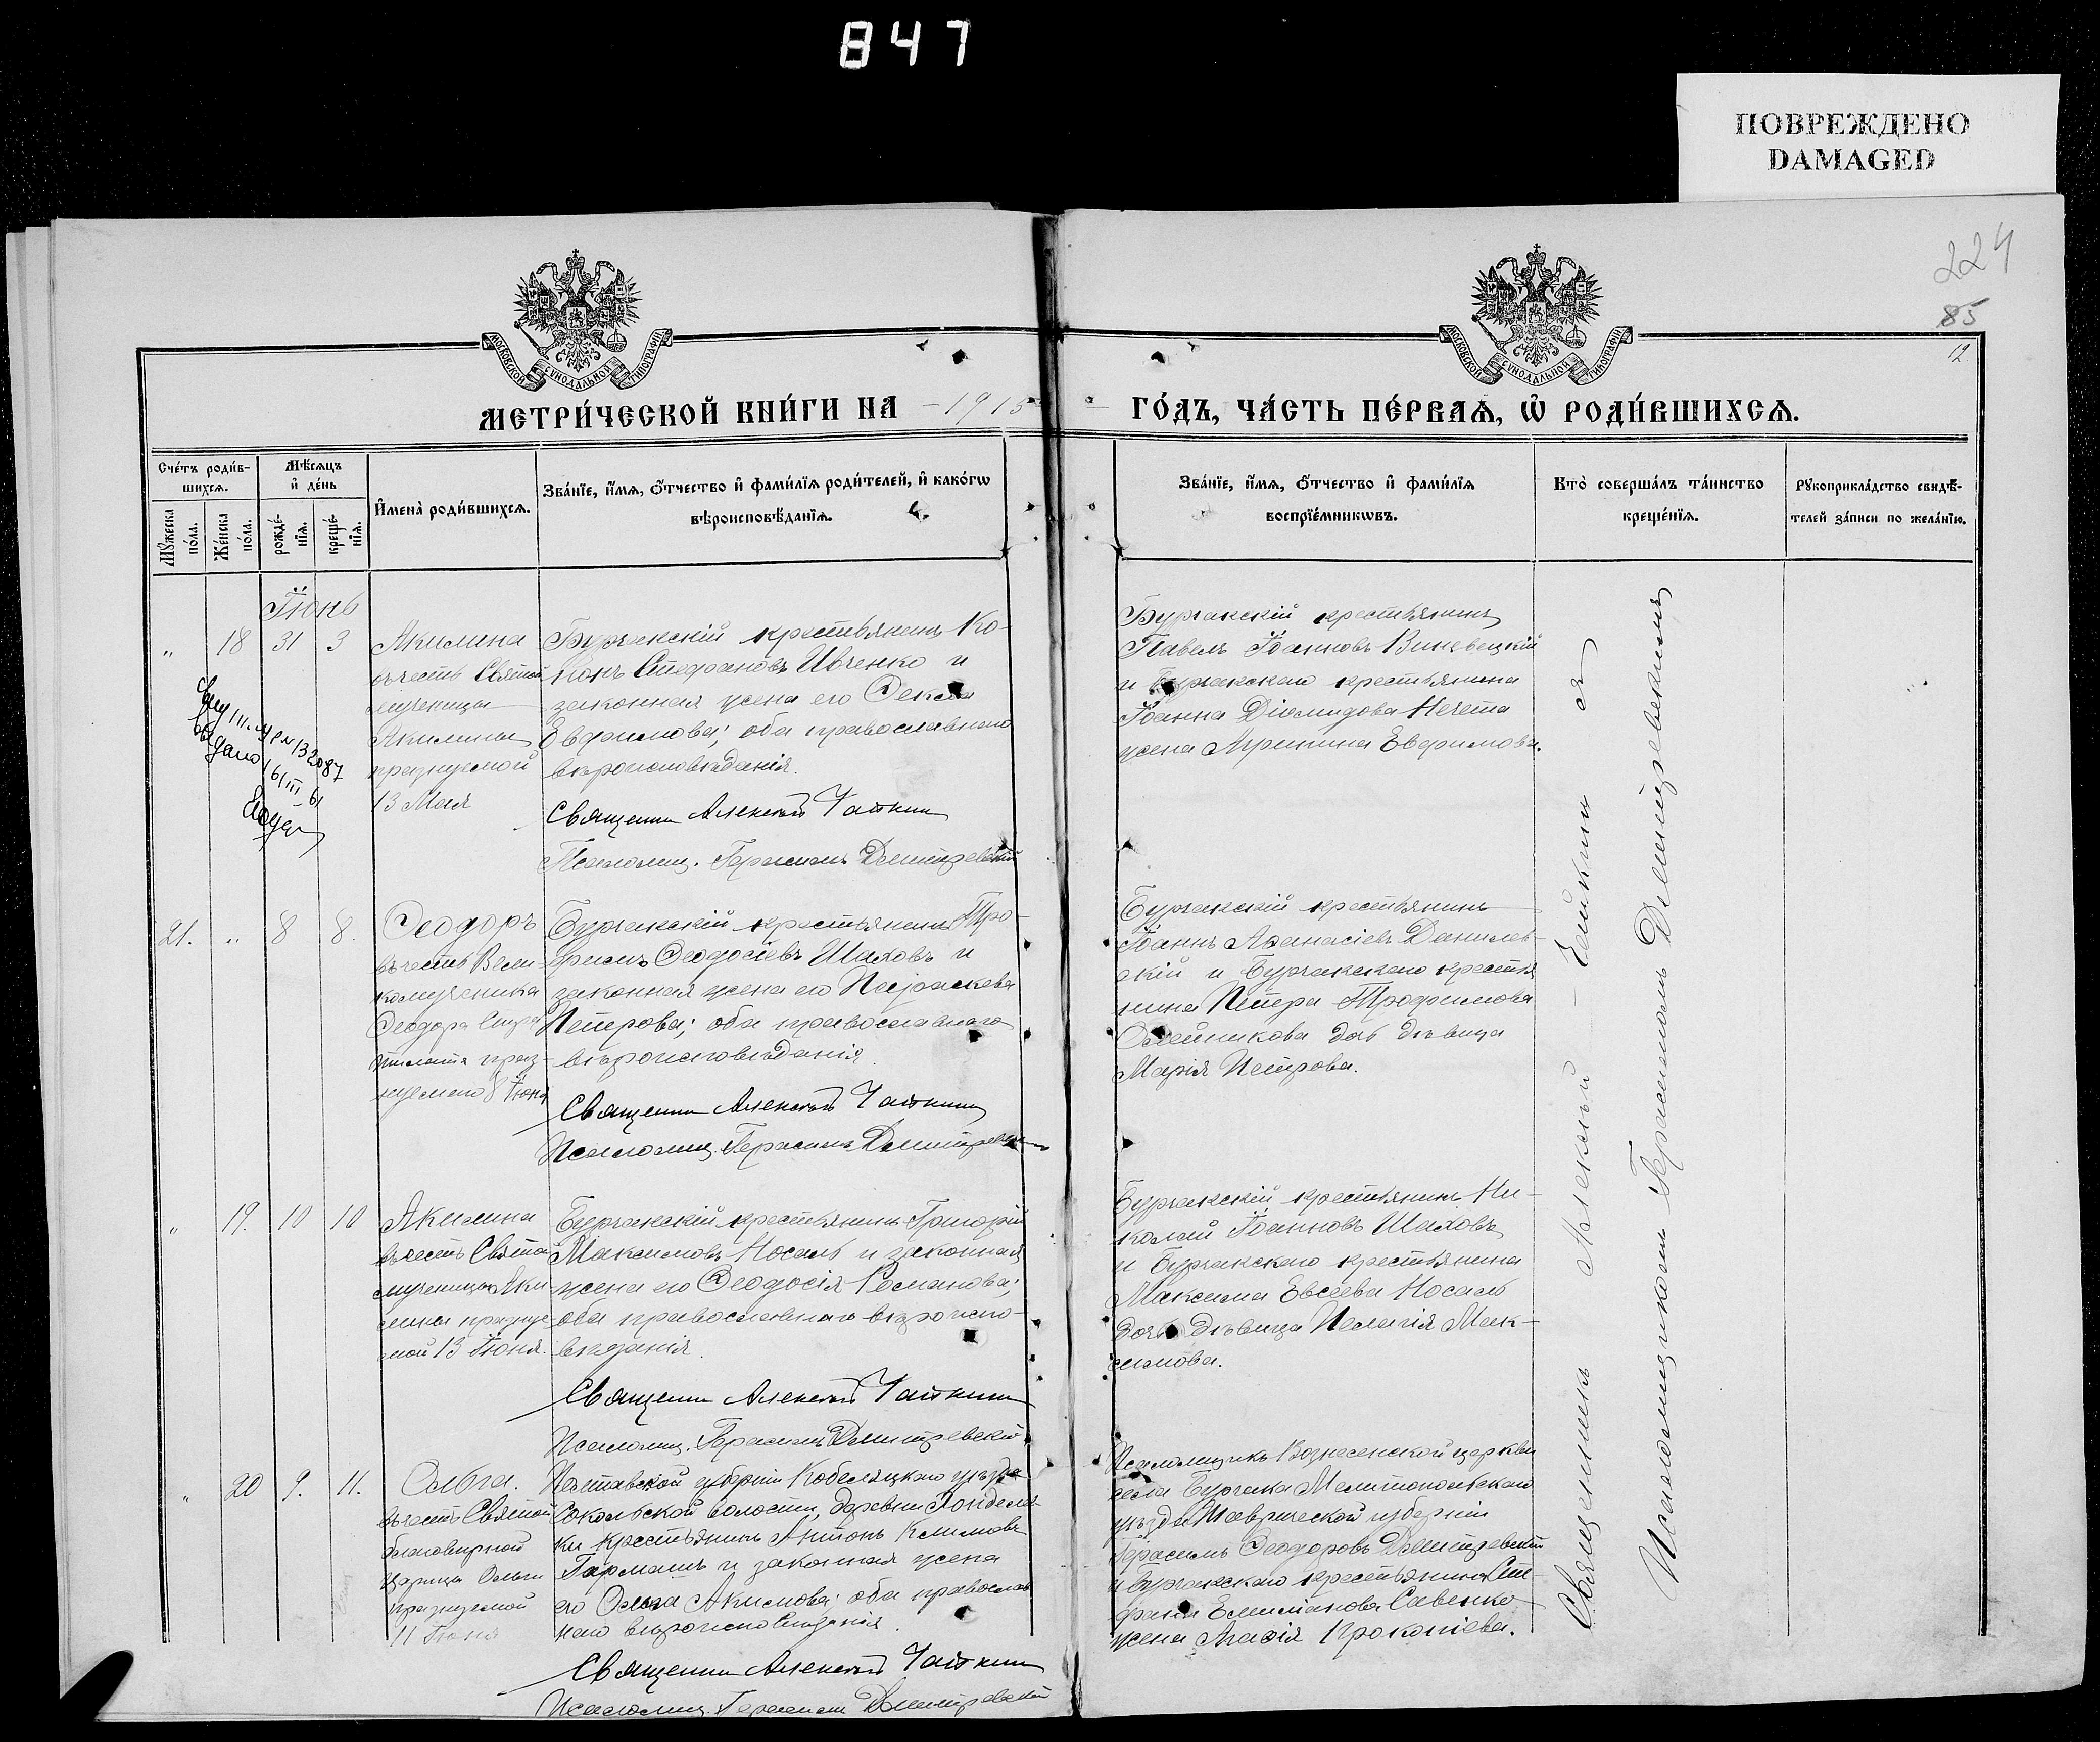 847
ПОВРЕЖДЕНО
DAMAGED
224
85
12
МОСКОВСКОЙ СѴНОДАЛЬНОЙ ТИПОГРАФІИ
МОСКОВСКОЙ СѴНОДАЛЬНОЙ ТИПОГРАФІИ
МЕТРИ́ЧЕСКОЙ КНИ́ГИ НА - 1915 -
ГО́ДЪ, ЧА́СТЬ ПЕ́РВАѦ, Ѡ҆ РОДИ́ВШИХСѦ.
Сче́тъ роди́в-
шихсѧ.
Мꙋ́жеска по́ла.
Же́нска по́ла.
Мѣ́сѧцъ и҆ де́нь
рожде́-
нїѧ.
креще́-
нїѧ.
И҆мена̀ роди́вшихсѧ.
Зва́нїе, и҆́мѧ, ѻ҆́тчество и҆ фами́лїѧ роди́телей, и҆ како́гѡ
вѣроисповѣ́данїѧ.
Зва́нїе, и҆́мѧ, ѻ҆́тчество и҆ фами́лїѧ
воспрїе́мникѡвъ.
Кто̀ соверша́лъ та́инство
креще́нїѧ.
Рꙋкоприкла́дство свидѣ́-
телей за́писи по жела́нїю.
Іюнь
" 18 31 3
Акилина
въ честь Святой
мученицы
Акилины
празнуемой
13 Мая
Бурчакскій крестьянинъ Ко-
нонъ Стефановъ Ивченко и
законная жена его Ѳекла
Евфимова; оба православнаго
вѣроисповѣданія.
Священник Алексѣй Чайкин
Псаломщ. Герасимъ Димитревскій
Бурчакскій крестьянинъ
Павелъ Іоанновъ Виневецкій
и Бурчакскаго крестьянина
Іоанна Діомидова Нечета
жена Агрипина Евфимова.
132087
61
21. " 8 8.
Ѳеодоръ
въ честь Вели-
комученика
Ѳеодора Стра-
тилата праз-
нуемаго 8 Іюня
Бурчакскій крестьянинъ Тро-
фимъ Ѳеодосіевъ Шаховъ и
законная жена его Параскева
Петрова; оба православнаго
вѣроисповѣданія.
Священник Алексѣй Чайкин
Псаломщ. Герасимъ Димитревскій
Бурчакскій крестьянинъ
Іоаннъ Аѳанасіевъ Данилев-
скій и Бурчакскаго крестья
нина Петра Трофимова
Олейникова доч дѣвица
Марія Петрова.
" 19. 10 10
Акилина
въ честь Святой
мученицы Аки-
лины празнуе-
мой 13 Іюня.
Бурчакскій крестьянинъ Григорій
Максимовъ Носаль и законная
жена его Ѳеодосія Романова;
оба православнаго вѣроиспо-
вѣданія.
Священник Алексѣй Чайкин
Псаломщ. Герасимъ Димитревскій
Бурчакскій крестьянинъ Ни-
колай Іоанновъ Шаховъ
и Бурчакскаго крестьянина
Максима Евсеева Носаль
дочь дѣвица Пелагія Мак-
симова.
" 20 9. 11.
Ольга.
въ честь Святой
благовѣрной
Царицы Ольги
празнуемой
11 Іюня
Полтавской губерніи Кобеляцкаго уѣзда
Сокольской волости, деревни
ки крестьянинъ Антонъ Климовъ
Гармашъ и законная жена
его Ольга Акимова; оба православ
наго вѣроисповѣданія.
Священник Алексѣй Чайкин
Псаломщ. Герасимъ Димитревскій
Псаломщикъ Вознесенской церкви
села Бурчака Мелитопольскаго
уѣзда Таврической губерніи
Герасимъ Ѳеодоровъ Димитревскій
и Бурчакскаго крестьянина Сте-
фана Емиліанова Савенко
жена Агафія Прокопіева.
Священникъ Алексѣй Чайкинъ съ
Псаломщикомъ Герасимомъ Димитревскимъ